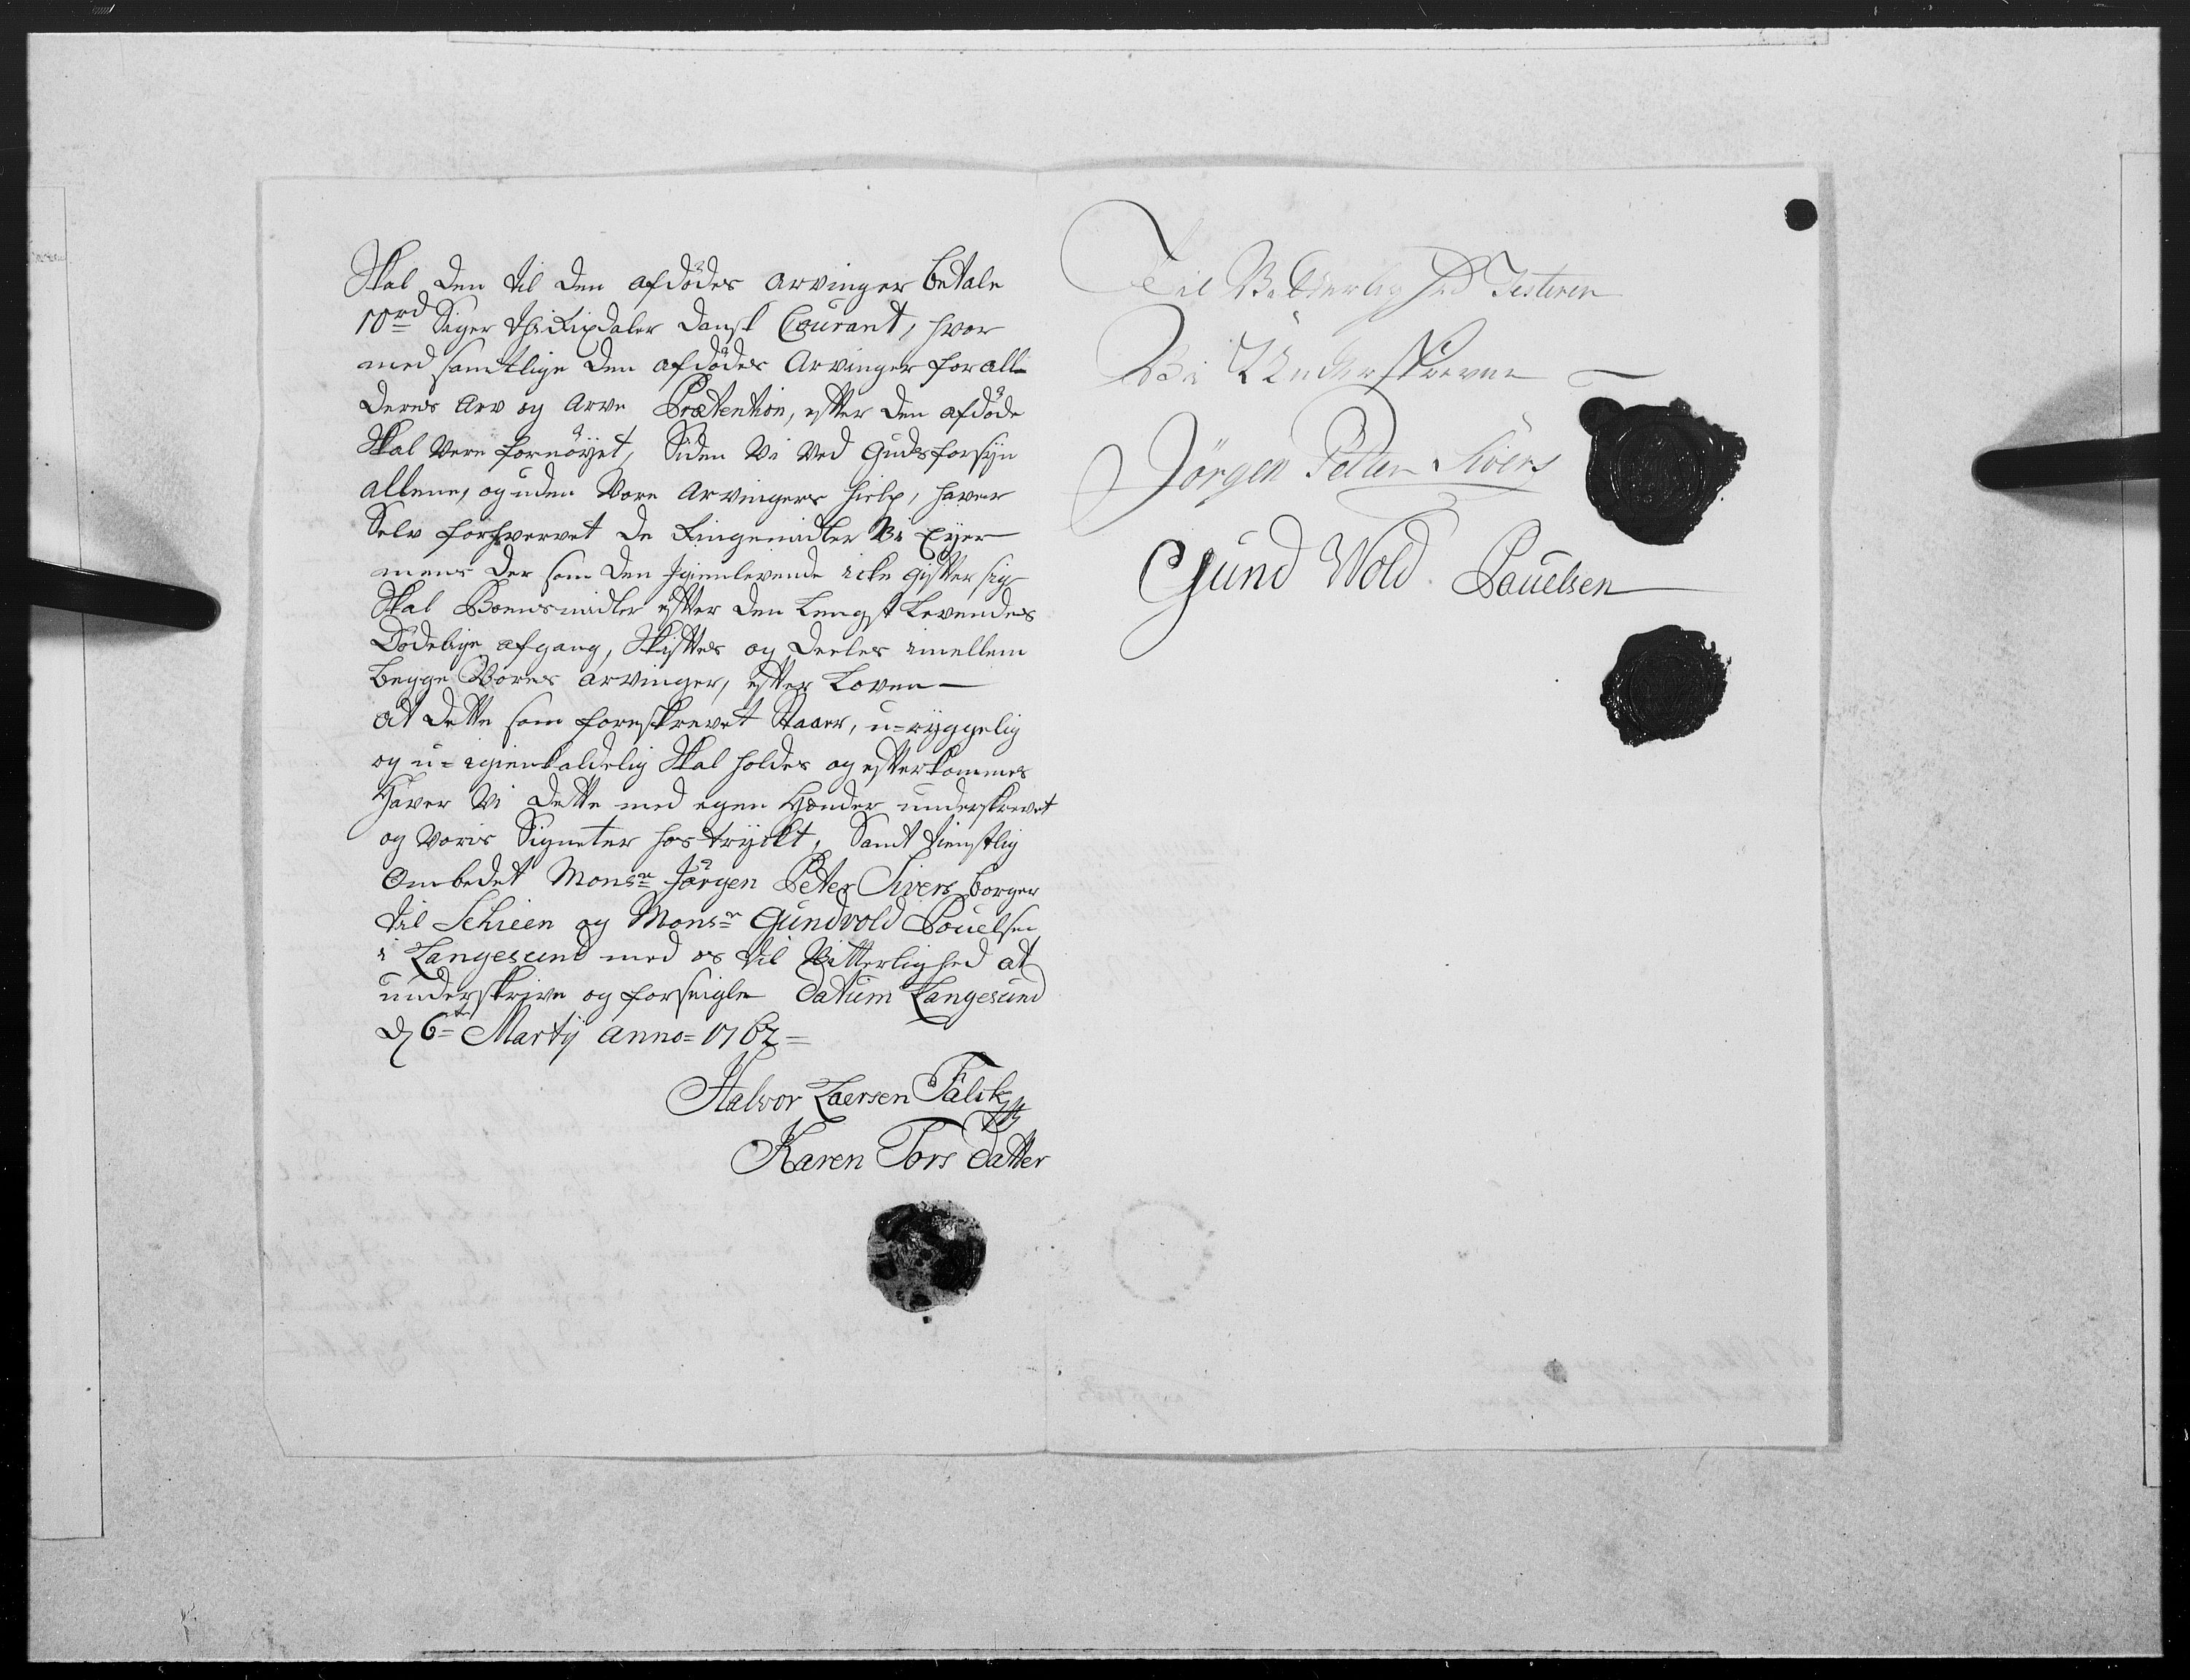 Skal den til den afdödes arvinger betale
10rd Siger Thi Rixdaler dansk Courant, hvor
med samtlige den afdödes Arvinger for all
deres Arv og Arve Prætention, efter den afdöde
Skal vere fornöyet, Siden Vi ved Guds forsyn
allene, og uden Vore Arvingers hielp, haver
Selv forhvervet de Ringe midler Vi Eyer
mens der som den Igienlevende icke gifter sig
Skal Boens midler efter den Lengst Levendes
Dödelige afgang, Skiftes og deeles imellem
begge Vores arvinger, efter Loven
At dette som foreskrevet Staaer, u-ryggelig
og u-igienkaldelig Skal holdes og efterkommes
Haver Vi dette med egen Hænder underskrevet
og voris Signeter hos trykt, Samt tienstlig
Ombedet Monsr Jörgen Peter Sivers borger
til Schieen og Monsr Gundvold Pouelsen
i Langesund med os til Vitterlighed at
underskrive og forseigle Datum Langesund
d 6te Martij anno 1762
Halvor Laersen Falck
Karen Tors datter
Til Vitterlighed Testeren
Vi Underskrevne
Jörgen Petter Sivers
Gund Wold Pouelsen